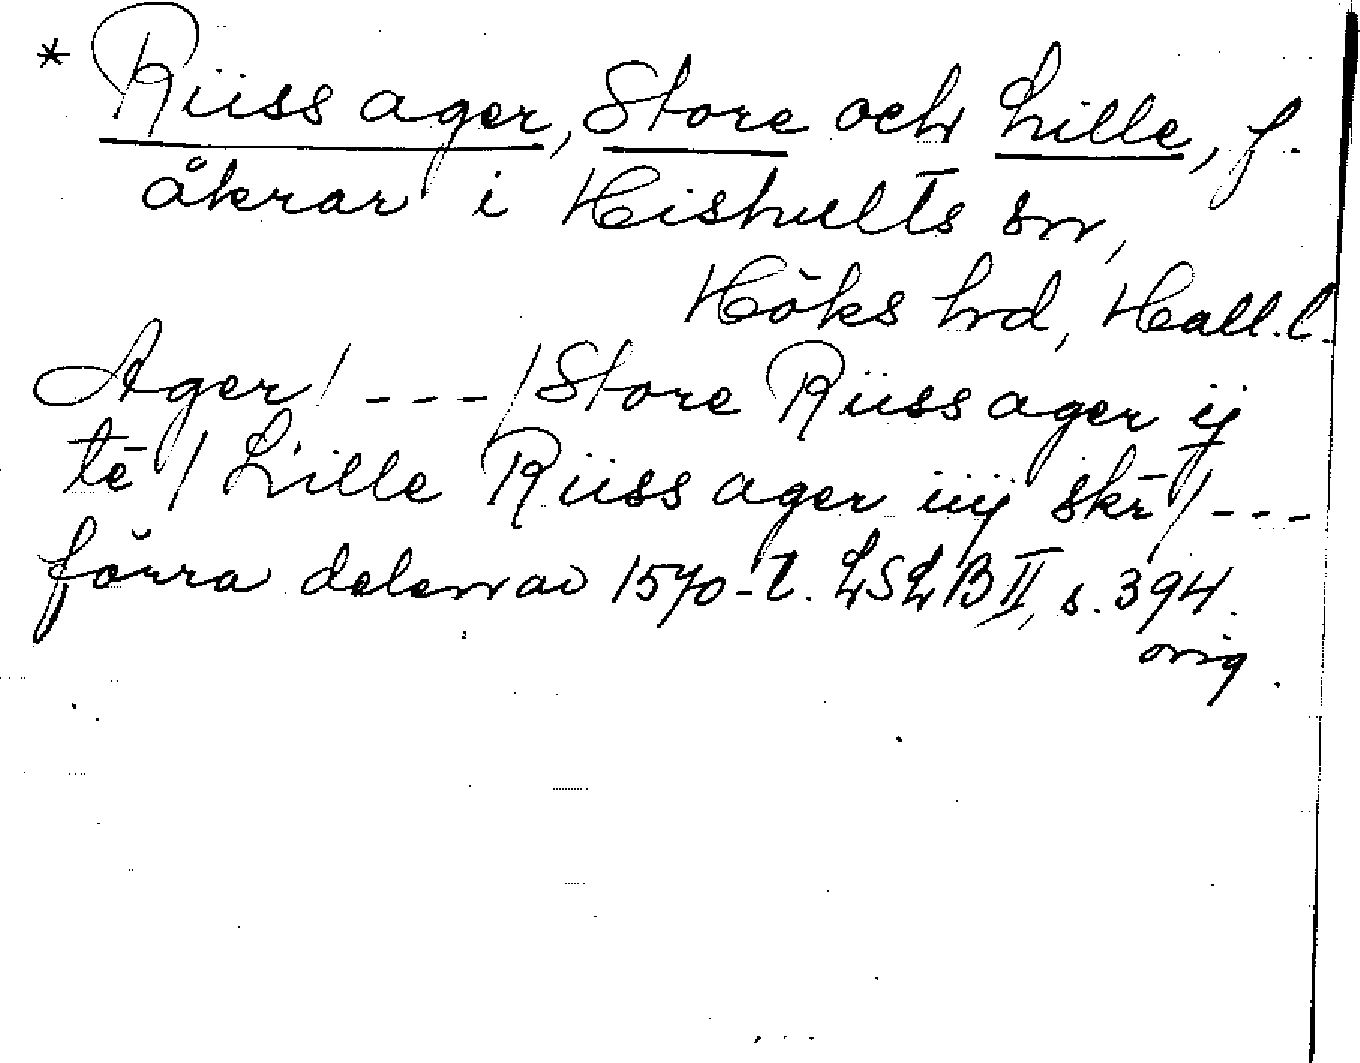 * Rüss ager, Store och Lille, f.
åkrar i Hishults sn,
Höks hd, Hall. l.
Ager / --- / Store Rüss ager ij
tē / Lille Rüss ager iiij skr̄ / ---
förra delen av 1570-t. LSLB II, s. 394.
orig.